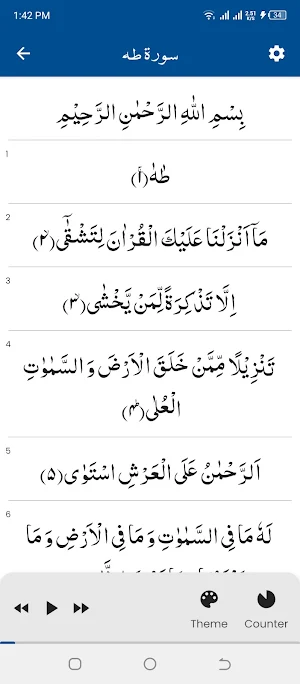 1:42 PM 2.51 K/S 34
سورة طه
بِسْمِ اللّٰهِ الرَّحْمٰنِ الرَّحِیْمِ
1
طٰهٰ(۱)
2
مَاۤ اَنْزَلْنَا عَلَیْكَ الْقُرْاٰنَ لِتَشْقٰۤى(۲)
3
اِلَّا تَذْكِرَةً لِّمَنْ یَّخْشٰى(۳)
4
تَنْزِیْلًا مِّمَّنْ خَلَقَ الْاَرْضَ وَ السَّمٰوٰتِ
الْعُلٰى(۴)
5
اَلرَّحْمٰنُ عَلَى الْعَرْشِ اسْتَوٰى(۵)
6
لَهٗ مَا فِی السَّمٰوٰتِ وَ مَا فِی الْاَرْضِ وَ مَا
Theme Counter